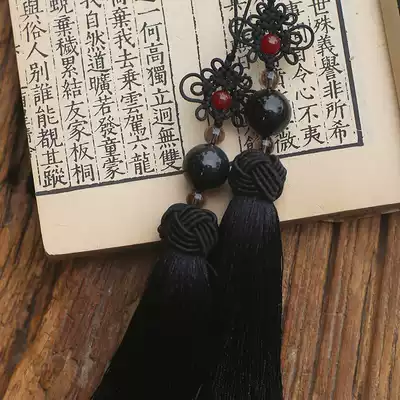 世殊義譽非所希
令心不夷
微
何高獨立迥無雙
棄我去乘雲駕六龍
我自然道曠若發童蒙
蛻棄穢累結友家板桐
與俗人別誰能覩其蹤